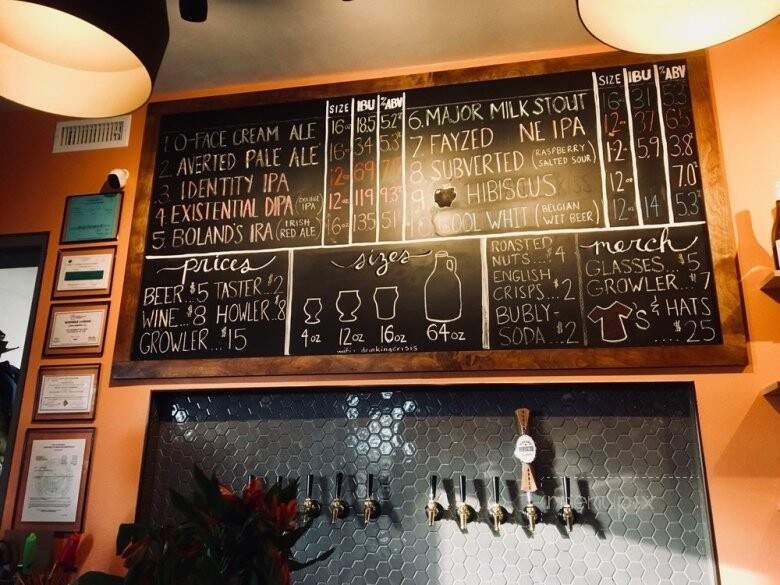 SIZE IBU %ABV
1. O-FACE CREAM ALE 16oz 18.5 5.2
2. AVERTED PALE ALE 16oz 34 5.3
3. IDENTITY IPA 12oz 69
4. EXISTENTIAL DIPA (DOUBLE IPA) 12oz 119 9.3
5. BOLAND'S IRA (IRISH RED ALE) 16oz 13.5 51
SIZE IBU %ABV
6. MAJOR MILK STOUT 16oz 31 5.3
7. FAYZED NE IPA 12oz 37 6.5
8. SUBVERTED (RASPBERRY SALTED SOUR) 12oz 5.9 3.8
9 HIBISCUS 12oz 7.0
COOL WHIT (BELGIAN WIT BEER) 12oz 14 5.3
prices
BEER..$5 TASTER..$2
WINE..$8 HOWLER..$8
GROWLER..$15
sizes
4oz 12oz 16oz 64oz
wifi: drinkingcrisis
ROASTED
NUTS....$4
ENGLISH
CRISPS...$2
BUBLY-
SODA...$2
merch
GLASSES..$5
GROWLER..$7
'S & HATS
....$25